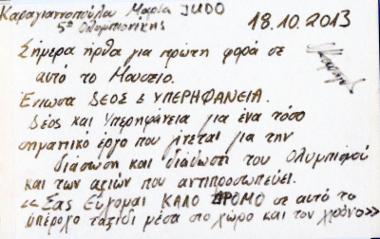 Καραγιαννοπούλου Μαρία JUDO
5η Ολυμπιονίκης
18.10.2013
Σήμερα ήρθα για πρώτη φορά σε
αυτό το Μουσείο.
Ένιωσα ΔΕΟΣ & ΥΠΕΡΗΦΑΝΕΙΑ.
Δέος και Υπερηφάνεια για ένα τόσο
σημαντικό έργο που γίνεται για την
διάσωση και διάδωση του Ολυμπισμού
και των αξιών που αντιπροσωπεύει.
«Σας Εύχομαι ΚΑΛΟ ΔΡΟΜΟ σε αυτό το
υπέροχο ταξίδι μέσα στο χώρο και τον χρόνο»